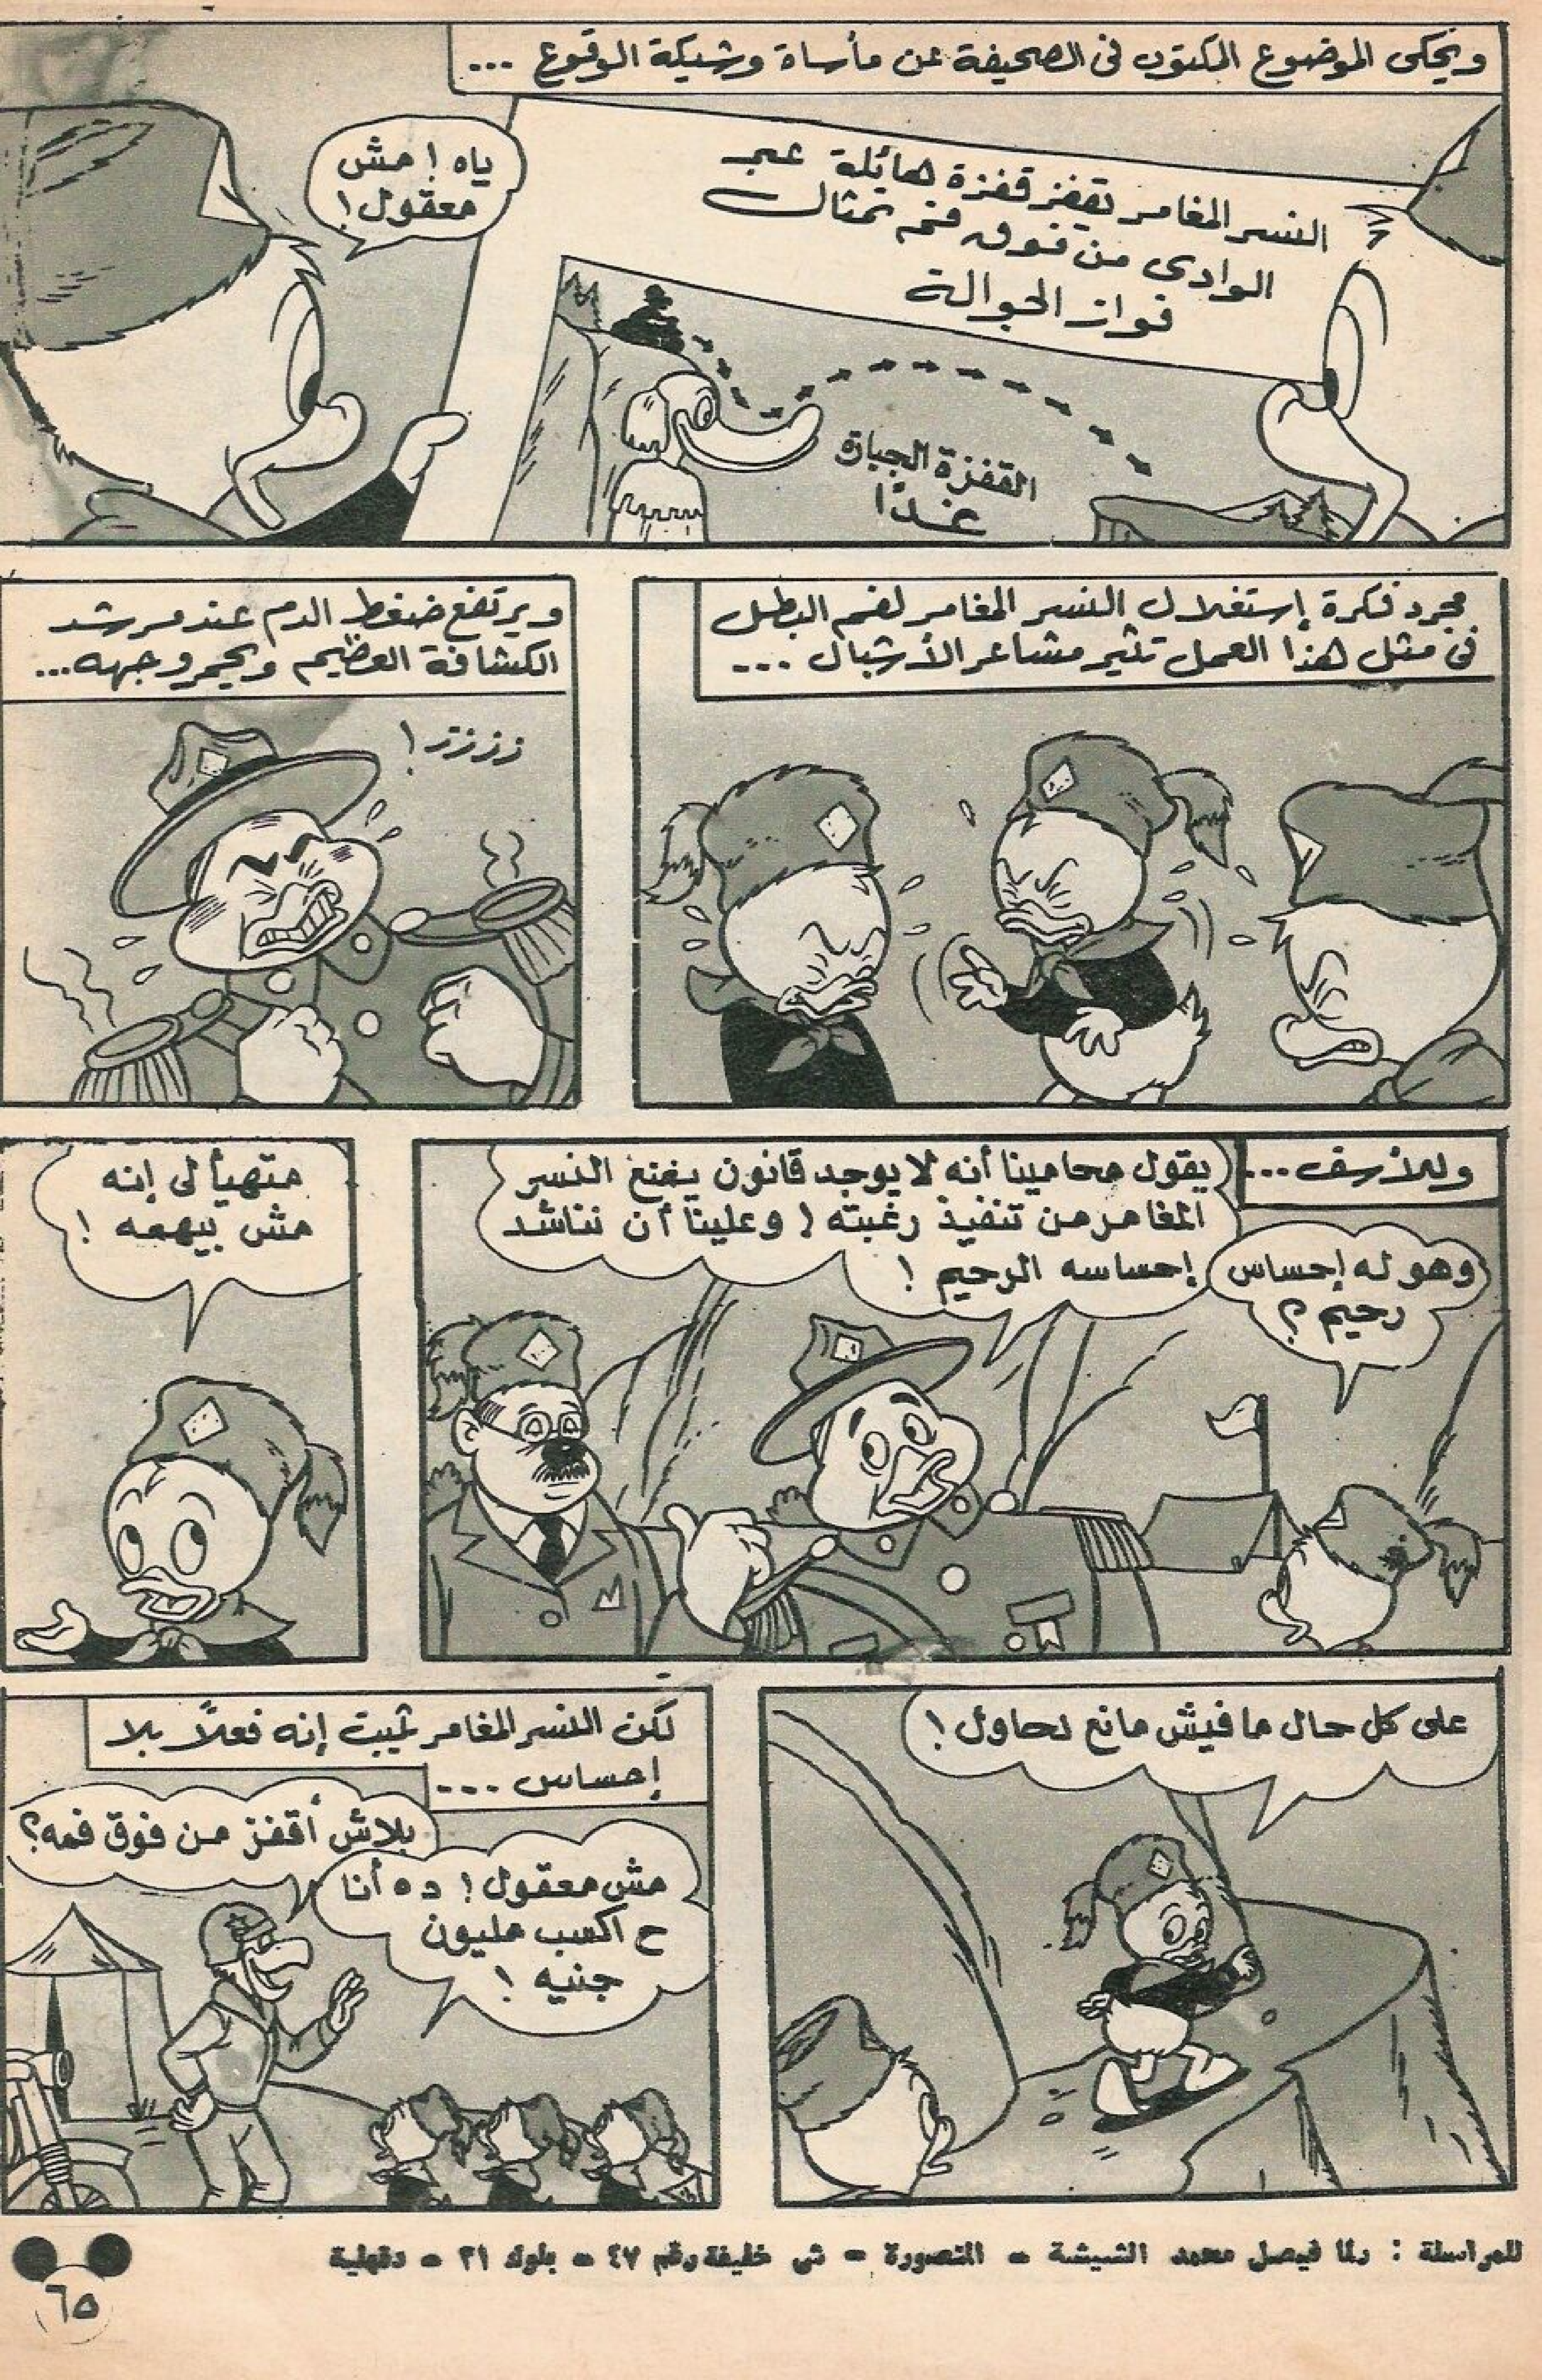 ويحكى الموضوع المكتوب فى الصحيفة عن مأساة وشيكة الوقوع ...
النسر المغامر يقفز قفزة هائلة عبر
الوادى من فوق فم تمثال
فواز الجوالة
ياه ! مش
معقول !
القفزة الجبارة
غدًا
مجرد فكرة إستغلال النسر المغامر لفم البطل
فى مثل هذا العمل تثير مشاعر الأشبال ...
ويرتفع ضغط الدم عند مرشد
الكشافة العظيم ويحمر وجهه...
زززتر !
وللأسف ...
يقول محامينا أنه لا يوجد قانون يمنع النسر
المغامر من تنفيذ رغبته ! وعلينا أن نناشد
إحساسه الرحيم !
وهو له إحساس
رحيم ؟
متهيألى إنه
مش بيهمه !
على كل حال مافيش مانع نحاول !
لكن النسر المغامر يثبت إنه فعلاً بلا
إحساس ...
بلاش أقفز من فوق فمه؟
مش معقول ! ده أنا
ح اكسب مليون
جنيه !
للمراسلة : رلا فيصل محمد الشيشة - المنصورة - ش خليفة رقم ٤٧ - بلوك ٣١ - دقهلية
٦٥